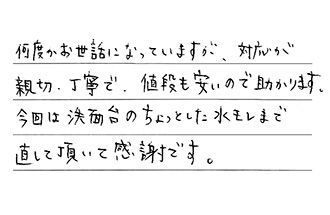 何度かお世話になっていますが、対応が
親切、丁寧で、値段も安いので助かります。
今回は洗面台のちょっとした水モレまで
直して頂いて感謝です。